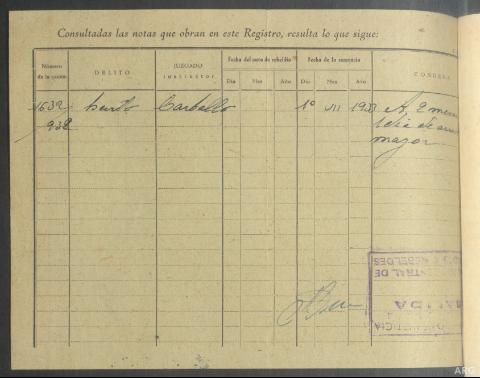 Consultadas las notas que obran en este Registro, resulta lo que sigue:
Número de la causa
DELITO
JUZGADO INSTRUCTOR
Fecha del auto de rebeldía
Fecha de la sentencia
CONDENA
Día Mes Año Día Mes Año
1632 hurto Carballo 1º VII 1933 A 2 meses
932 1 día de arresto
mayor